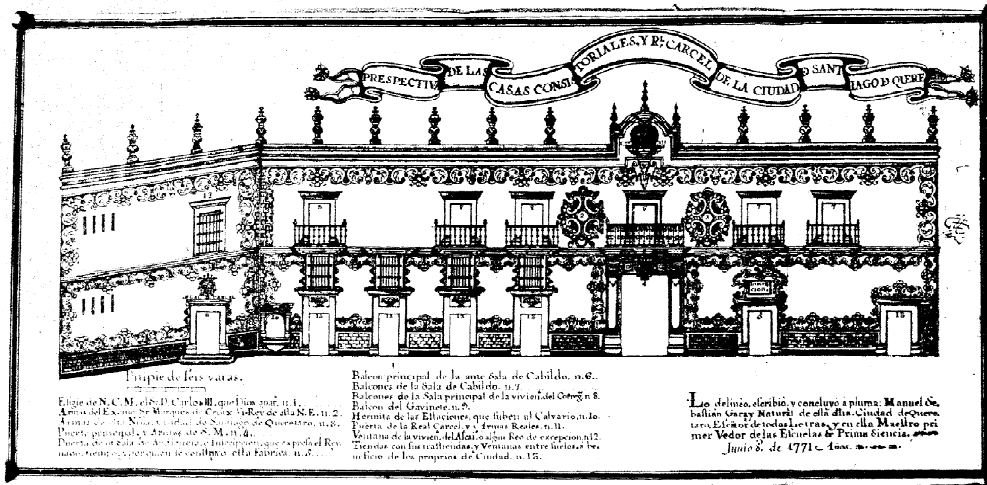 PRESPECTIVA DE LAS CASAS CONSISTORIALES, Y Rl. CARCEL DE LA CIUDAD D SANTIAGO D QUERE
Pitipie de seis varas.
Efigie de N. C. M. el Sr. D. Carlos III. que Dios n. 1.
Armas del Exmo. Sr. Marques de Croix Vi-Rey de esta N. E. n. 2.
Armas de esta Noble Ciudad de Santiago de Queretaro. n. 3.
Puerta principal, y Armas de S. M. n. 4.
Puerta de la Sala de Audiencia, e Inscripcion, que expresa el Rey
nado, tiempo, y por quien se esta fabrica. n. 5.
Balcon principal de la ante Sala de Cabildo. n. 6.
Balcones de la Sala de Cabildo. n. 7.
Balcones de la Sala principal de la vivien. del Correg. n. 8.
Balcon del Gavinete. n. 9.
Hermita de las Estaciones, que suben al Calvario. n. 10.
Puerta de la Real Carcel, y Armas Reales. n. 11.
Ventana de la vivien. del Alcai. o algun Reo de excepcion. n. 12.
Tiendas con sus trastiendas, y Ventanas entre suelos a be
neficio de los proprios de Ciudad. n. 13.
Lo delineó, escribió, y concluyó a pluma: Manuel Se
bastian Garay Naturl. de esta dha. Ciudad de Quere
taro, Escritor de todas Letras, y en ella Maestro pri
mer Vedor de las Escuelas de Primª Ciencia.
Junio 8. de 1771